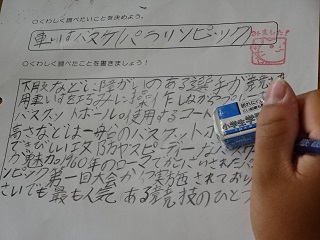 ○くわしく調べたいことを決めよう。
車いすバスケ(パラリンピック)
みました!
○くわしく調べたことを書きましょう!
に障がいのある選手が競技
用車いすを巧みに操作しながらプ
バスケットボール。使用するコート
高さなどは一般のバスケットボ
できびしい攻防やスピーディーな
が魅力。1960年のローマでかいさいされたパ
ンピック第一回大会から実施されており
さいでも最も人気 ある競技のひと
小学生学習